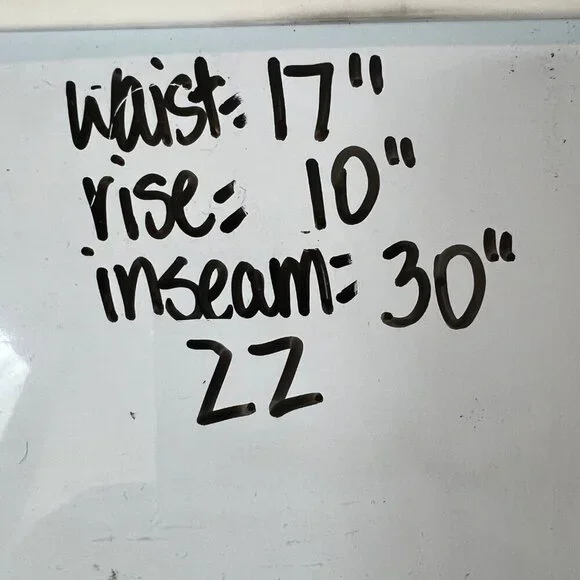 waist: 17"
rise= 10"
inseam= 30"
22